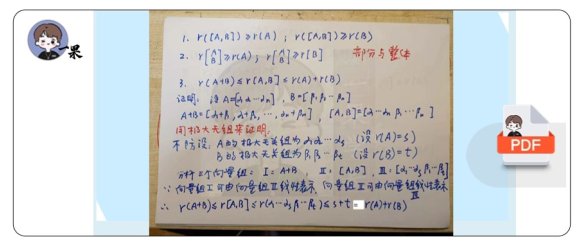 一果
1. r([A,B])≥r(A) ; r([A,B])≥r(B)
2. r[A/B]≥r(A) ; r[A/B]≥r[B]
部分与整体
3. r(A+B)≤r[A,B]≤r(A)+r(B)
证明: 设A=[α₁α₂…αn] , B=[β₁β₂…βn]
A+B=[α₁+β₁, α₂+β₂, …, αn+βn] , [A,B]=[α₁…αn β₁…βn]
用极大无关组来证明:
不妨设: A的极大无关组为α₁α₂…αs (设r(A)=s)
B的极大无关组为β₁β₂…βt (设r(B)=t)
分析三个向量组: Ⅰ: A+B , Ⅱ: [A,B] , Ⅲ: [α₁…αs β₁…βt]
∵ 向量组Ⅰ可由向量组Ⅱ线性表示, 向量组Ⅱ可由向量组线性表示
Ⅲ
∴ r(A+B)≤r[A,B]≤r(α₁…αs β₁…βt)≤s+t=r(A)+r(B)
PDF